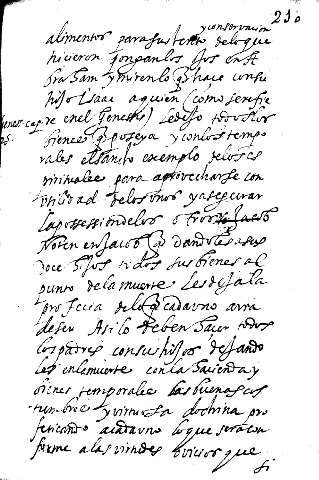 210
y conservacion
alimentos para sustento de lo que
hicieron pongan los ojos en A
bra Sam y mirenlo q hace con su
hijo Isaac a quien (como se refie
re en el genesis) le dejo todos los
bienes q poseya y con los tempo
rales el santo exemplo de los es
pirituales para aprovecharse con
utilidad de los unos y asegurar
la possession de los otros Jacob
Noten en Jacob q dandoles a sus
doce hijos todos sus bienes al
punto de la muerte les dejo la
profecia de lo q cada uno avia
de ser Asi lo deben hacer todos
los padres con sus hijos dejando
les en la muerte con la hacienda y
bienes temporales las buenas cos
tumbres y virtuosa doctrina pro
fetizando a cada uno lo que sera con
forme a las virtudes o vicios que
si